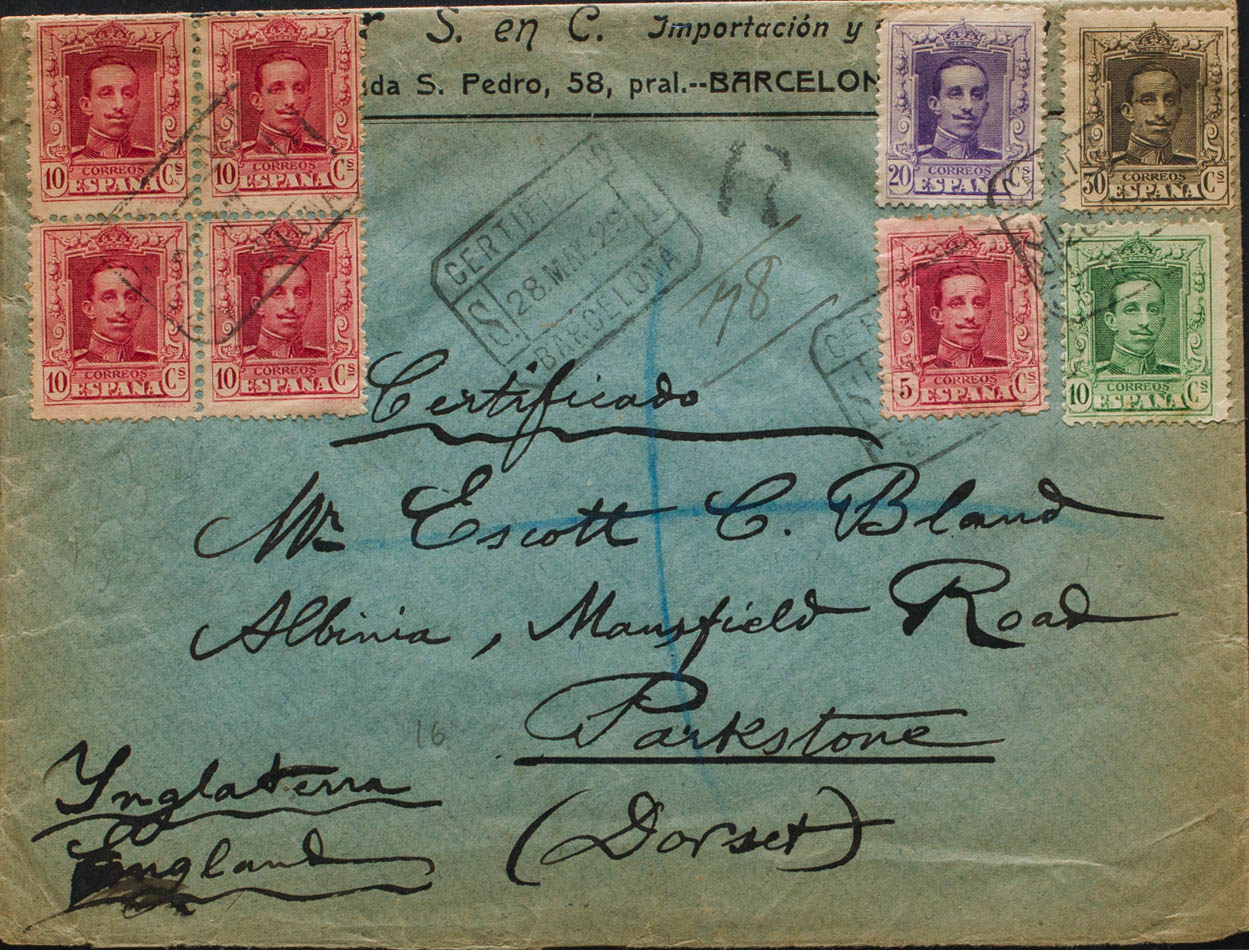 S. en C. Importación y
da S. Pedro, 58, pral.--BARCELON
10 CORREOS ESPAÑA Cs
10 CORREOS ESPAÑA Cs
10 CORREOS ESPAÑA Cs
10 CORREOS ESPAÑA Cs
20 CORREOS ESPAÑA Cs
30 CORREOS ESPAÑA Cs
5 CORREOS ESPAÑA Cs
10 CORREOS ESPAÑA Cs
R
CERTIFICADO
28.MAY.25
BARCELONA
178
Certificado
Mr Escott C. Bland
Albinia, Mansfield Road
Parkstone
(Dorset)
16
Ynglaterra
England